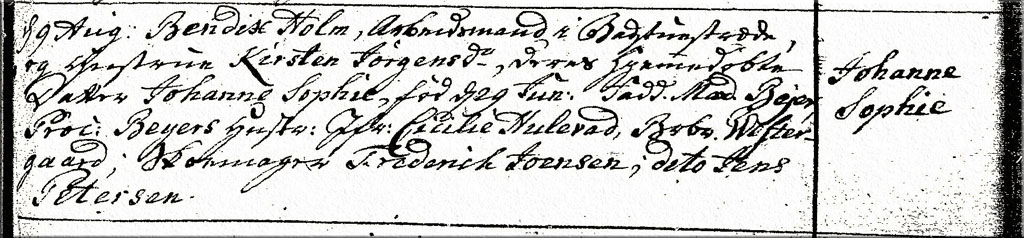 d 9 Aug: Bendix Holm, Arbeidsmand i Badstuestræde,
og Hustrue Kirsten Jörgensdr, deres Hjemmedøbte
Datter Johanne Sophie, fød d 29 Jun: Fadd. Mad. Bejer,
Proc: Beyers Hustr: Jfr: Cicilie Hulerad, Brbr. Wester-
gaard, Skoemager Frederich Joensen, dito Jens
Petersen.
Johanne
Sophie